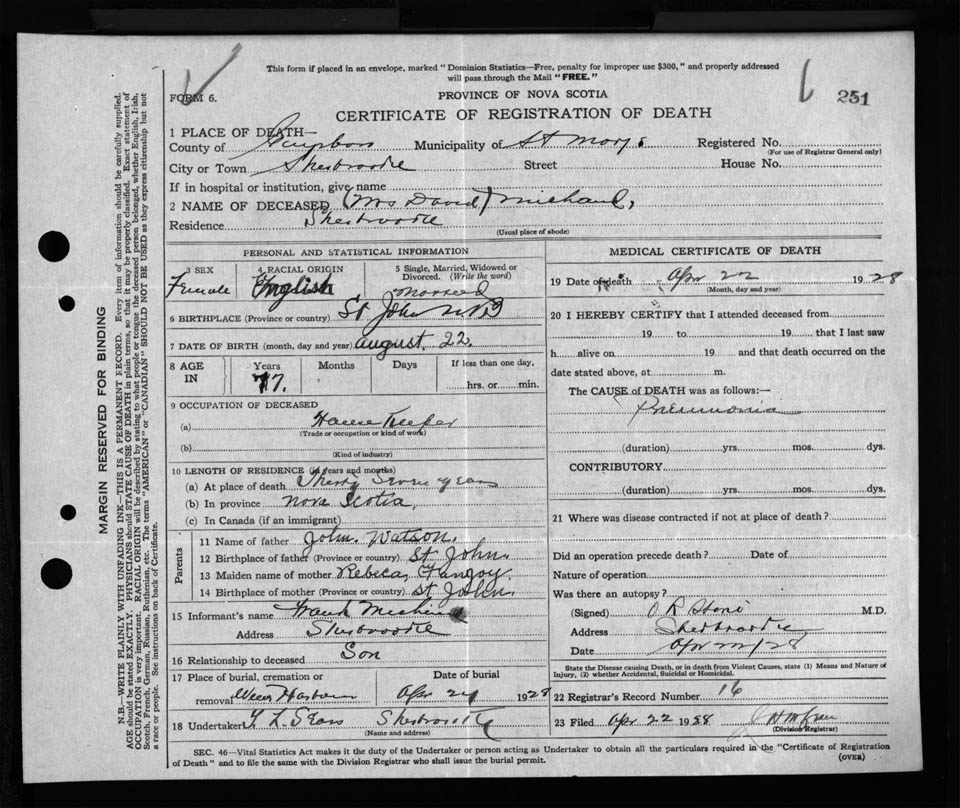 This form if placed in an envelope, marked "Dominion Statistics—Free, penalty for improper use $300," and properly addressed
will pass through the Mail "FREE."
FORM 6.
PROVINCE OF NOVA SCOTIA
251
CERTIFICATE OF REGISTRATION OF DEATH
1 PLACE OF DEATH—
County of Municipality of St Mary's Registered No.
(For use of Registrar General only)
City or Town Sherbrooke Street House No.
If in hospital or institution, give name
2 NAME OF DECEASED (Mrs David)
Residence Sherbrooke
(Usual place of abode)
PERSONAL AND STATISTICAL INFORMATION
3 SEX 4 RACIAL ORIGIN 5 Single, Married, Widowed or Divorced. (Write the word)
Female English Married
6 BIRTHPLACE (Province or country) St John N B
7 DATE OF BIRTH (month, day and year) August, 22.
8 AGE IN Years Months Days If less than one day,
77. hrs. or min.
9 OCCUPATION OF DECEASED
(a) House Keeper
(Trade or occupation or kind of work)
(b)
(Kind of industry)
10 LENGTH OF RESIDENCE (in years and months)
(a) At place of death Thirty years
(b) In province Nova Scotia,
(c) In Canada (if an immigrant)
Parents
11 Name of father John. Watson.
12 Birthplace of father (Province or country) St John.
13 Maiden name of mother Rebeca
14 Birthplace of mother (Province or country) St John.
15 Informant's name Frank
Address Sherbrooke
16 Relationship to deceased Son
17 Place of burial, cremation or removal Date of burial
Wine Harbour Apr 24 1928
18 Undertaker Sherbrooke
(Name and address)
MEDICAL CERTIFICATE OF DEATH
19 Date of death Apr 22 1928
(Month, day and year)
20 I HEREBY CERTIFY that I attended deceased from
19 to 19 that I last saw
h alive on 19 and that death occurred on the
date stated above, at m.
The CAUSE of DEATH was as follows:—
Pneumonia
(duration) yrs. mos. dys.
CONTRIBUTORY
(duration) yrs. mos. dys.
21 Where was disease contracted if not at place of death?
Did an operation precede death? Date of
Nature of operation
Was there an autopsy?
(Signed) M.D.
Address Sherbrooke
Date Apr 22/28
State the Disease causing Death, or in death from Violent Causes, state (1) Means and Nature of
Injury, (2) whether Accidental, Suicidal or Homicidal.
22 Registrar's Record Number 16
23 Filed Apr 22 1928
(Division Registrar)
SEC. 46—Vital Statistics Act makes it the duty of the Undertaker or person acting as Undertaker to obtain all the particulars required in the "Certificate of Registration
of Death" and to file the same with the Division Registrar who shall issue the burial permit.
(OVER)
MARGIN RESERVED FOR BINDING
N.B.—WRITE PLAINLY WITH UNFADING INK—THIS IS A PERMANENT RECORD. Every item of information should be carefully supplied.
AGE should be stated EXACTLY. PHYSICIANS should STATE CAUSE OF DEATH in plain terms, so that it may be properly classified. Exact statement of
OCCUPATION is very important. RACIAL ORIGIN will be described by stating to what people or tongue the deceased person belonged, whether English, Irish,
Scotch, French, German, Russian, Ruthenian, etc. The terms "AMERICAN" or "CANADIAN" SHOULD NOT BE USED as they express citizenship but not
a race or people. See instructions on back of Certificate.